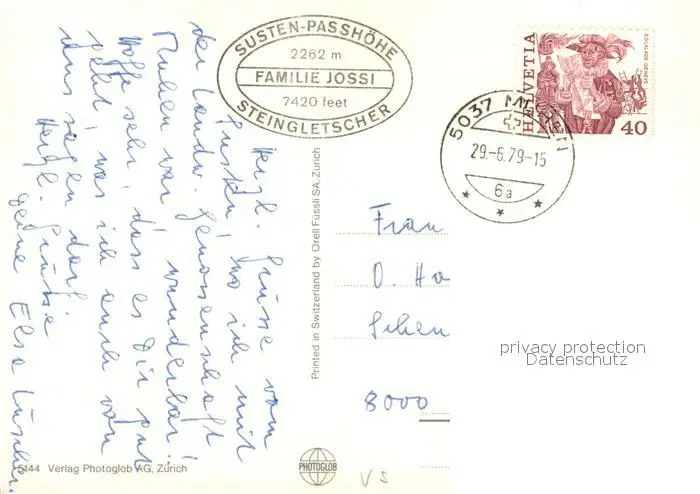 SUSTEN-PASSHÖHE
2262 m
FAMILIE JOSSI
7420 feet
STEINGLETSCHER
HELVETIA
ESCALADE GENEVE
40
5037 MUHEN
29.-6.79-15
6a
Herzl. Grüsse vom
Susten, wo ich mit
der Landw. Genossenschaft
Muhen war wunderbar!
Hoffe sehr, dass es Dir gut
geht, was ich auch von
uns sagen darf.
Herzl. Grüsse
Deine Elsa
Frau
O. Ha
Schen
8000
privacy protection
Datenschutz
Printed in Switzerland by Orell Füssli SA, Zürich
5144 Verlag Photoglob AG, Zürich
PHOTOGLOB
VS